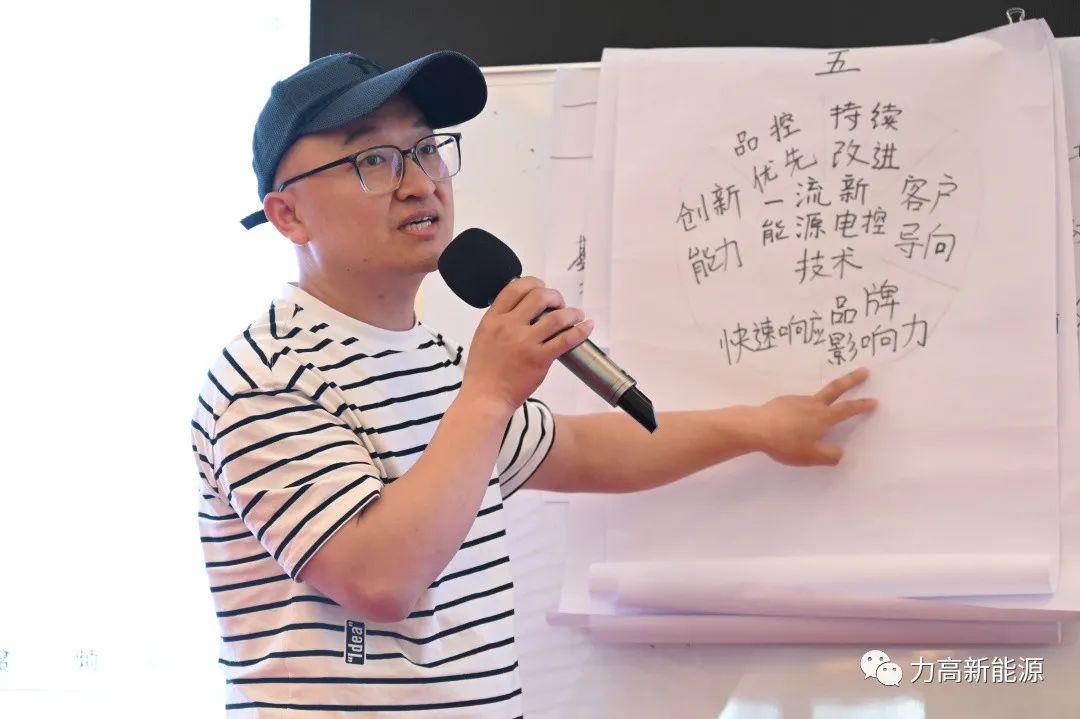 五
品控
优先
持续
改进
创新
能力
一流新
能源电控
技术
客户
导向
快速响应
品牌
影响力
"Idea"
力高新能源